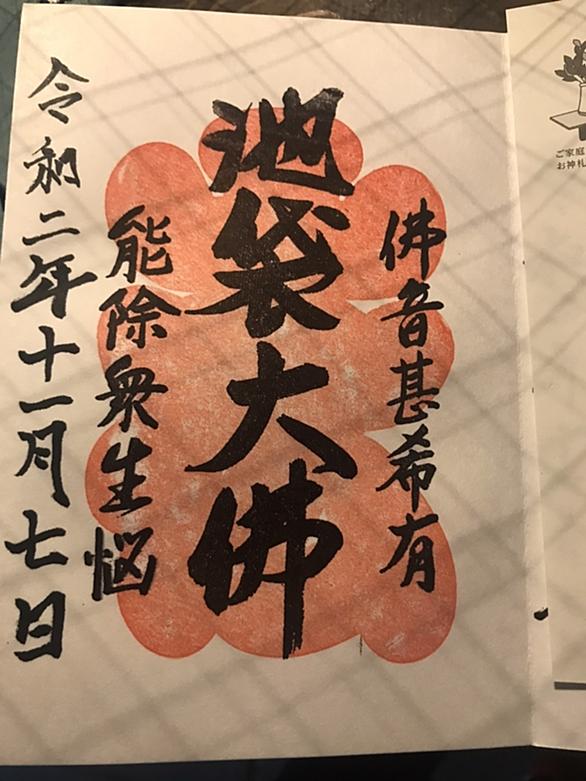 佛音甚希有
池袋大佛
能除衆生悩
令和二年十一月七日
ご家庭
お神札